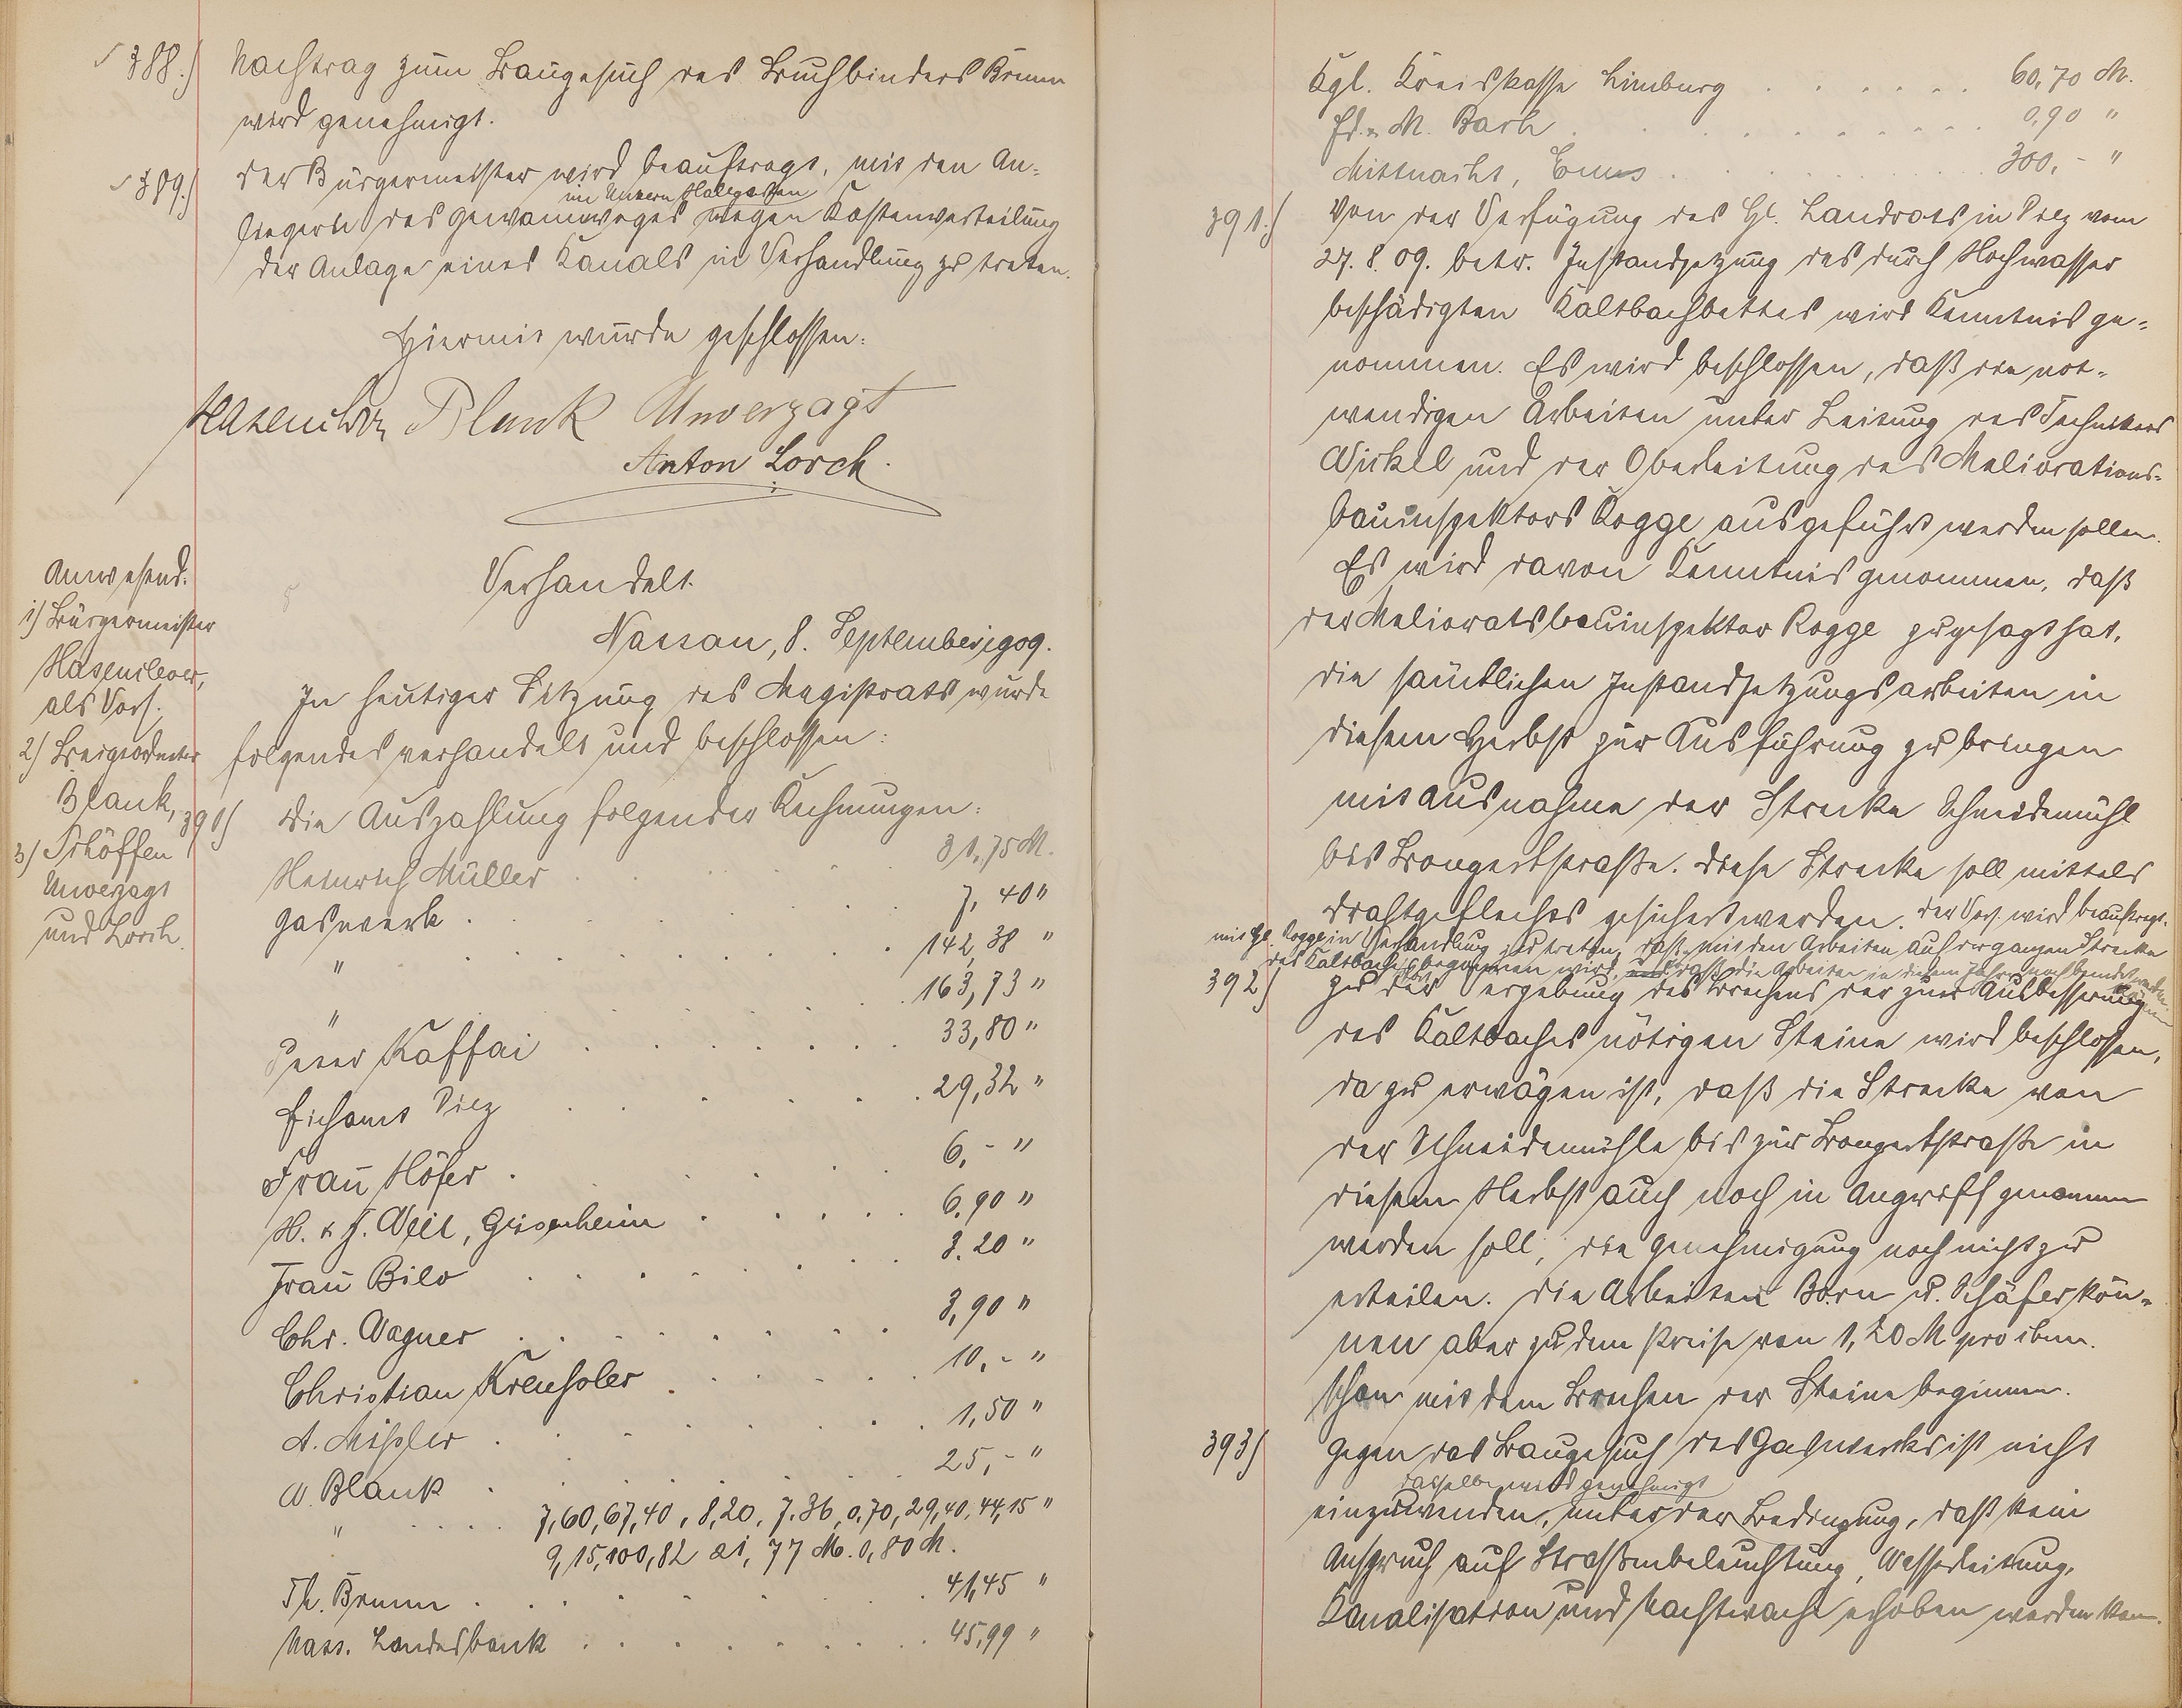 388.) Nachtrag zum Baugesuch des Buchbinders Brumm
wird genehmigt.
389.) Der Bürgermeister wird beauftragt, mit den An-
im Untern Hallgarten
liegern des Gewannweges wegen Kostenverteilung
der Anlage eines Kanals in Verhandlung zu treten.
Hiermit wurde geschlossen:
Hasenclever Blank Unverzagt
Anton Lorch.
Verhandelt.
Nassau, 8. September 1909.
Anwesend:
1) Bürgermeister
Hasenclever,
als Vors.
2) Beigeordneter
Blank,
3) Schöffen
Unverzagt
und Lorch.
In heutiger Sitzung des Magistrats wurde
folgendes verhandelt und beschlossen:
390) Die Auszahlung folgender Rechnungen:
Heinrich Müller . . . . 31,75 M.
Gaswerk . . . . 7,40 "
" . . . . 142,38 "
" . . . . 163,73 "
Peter Kaffai . . . . 33,80 "
Eichamt Diez . . . . 29,32 "
Frau Höfer . . . . 6,- "
H. & J. Weil, Geisenheim . . . . 6,90 "
Frau Bilo . . . . 3.20 "
Chr. Wagner . . . . 3,90 "
Christian Kreusler . . . . 10,- "
A. Mißler . . . . 1,50 "
W. Blank . . . . 25,- "
" . . . . 7,60, 67,40, 8,20, 7.36, 0,70, 29,40, 44,15 "
9,15, 100,82 21,77 M. 0,80 M.
Th. Brumm . . . . 41,45 "
Nass. Landesbank . . . . 45,99 "
Kgl. Kreiskasse Limburg . . . . 60,70 M.
M. Bach . . . . 0,90 "
Mittnacht, Ems . . . . 300,- "
391.) Von der Verfügung des Hl. Landrats in Diez vom
27. 8. 09. betr. Instandsetzung des durch Hochwasser
beschädigten Kaltbachbettes wird Kenntnis ge-
nommen. Es wird beschlossen, daß die not-
wendigen Arbeiten unter Leitung des Technikers
Nickel und der Oberleitung des Meliorations-
bauinspektors Rogge ausgeführt werden sollen.
Es wird davon Kenntnis genommen, daß
der Melioratsbauinspektor Rogge zugesagt hat,
die sämtlichen Instandsetzungsarbeiten in
diesem Herbst zur Ausführung zu bringen
mit Ausnahme der Strecke Schneidemühl
bis Bongertstraße. Diese Strecke soll mittels
Drahtgeflechts gesichert werden. Der Vors. wird beauftragt,
mit Hl. Rogge in Verhandlung zu treten, daß mit den Arbeiten auf der ganzen Strecke
des Kaltbachs begonnen wird, und daß die Arbeiten in diesem Jahre noch beendet werden
392) Zu der Vergebung des Brechens der zur Ausbesserung
des Kaltbaches nötigen Steine wird beschlossen,
da zu erwägen ist, daß die Strecke von
der Schneidemühle bis zur Bongertstraße in
diesem Herbst auch noch in Angriff genommen
werden soll, die Genehmigung noch nicht zu
erteilen. Die Arbeiten Born u. Schäfer kön-
nen aber zu dem Preise von 1,20 M pro cbm.
schon mit dem Brechen der Steine beginnen.
393) Gegen das Baugesuch des Gaswerks ist nichts
dasselbe wird genehmigt
einzuwenden, unter der Bedingung, daß kein
Anspruch auf Straßenbeleuchtung, Wasserleitung,
Kanalisation und Nachtwache erhoben werden kann.